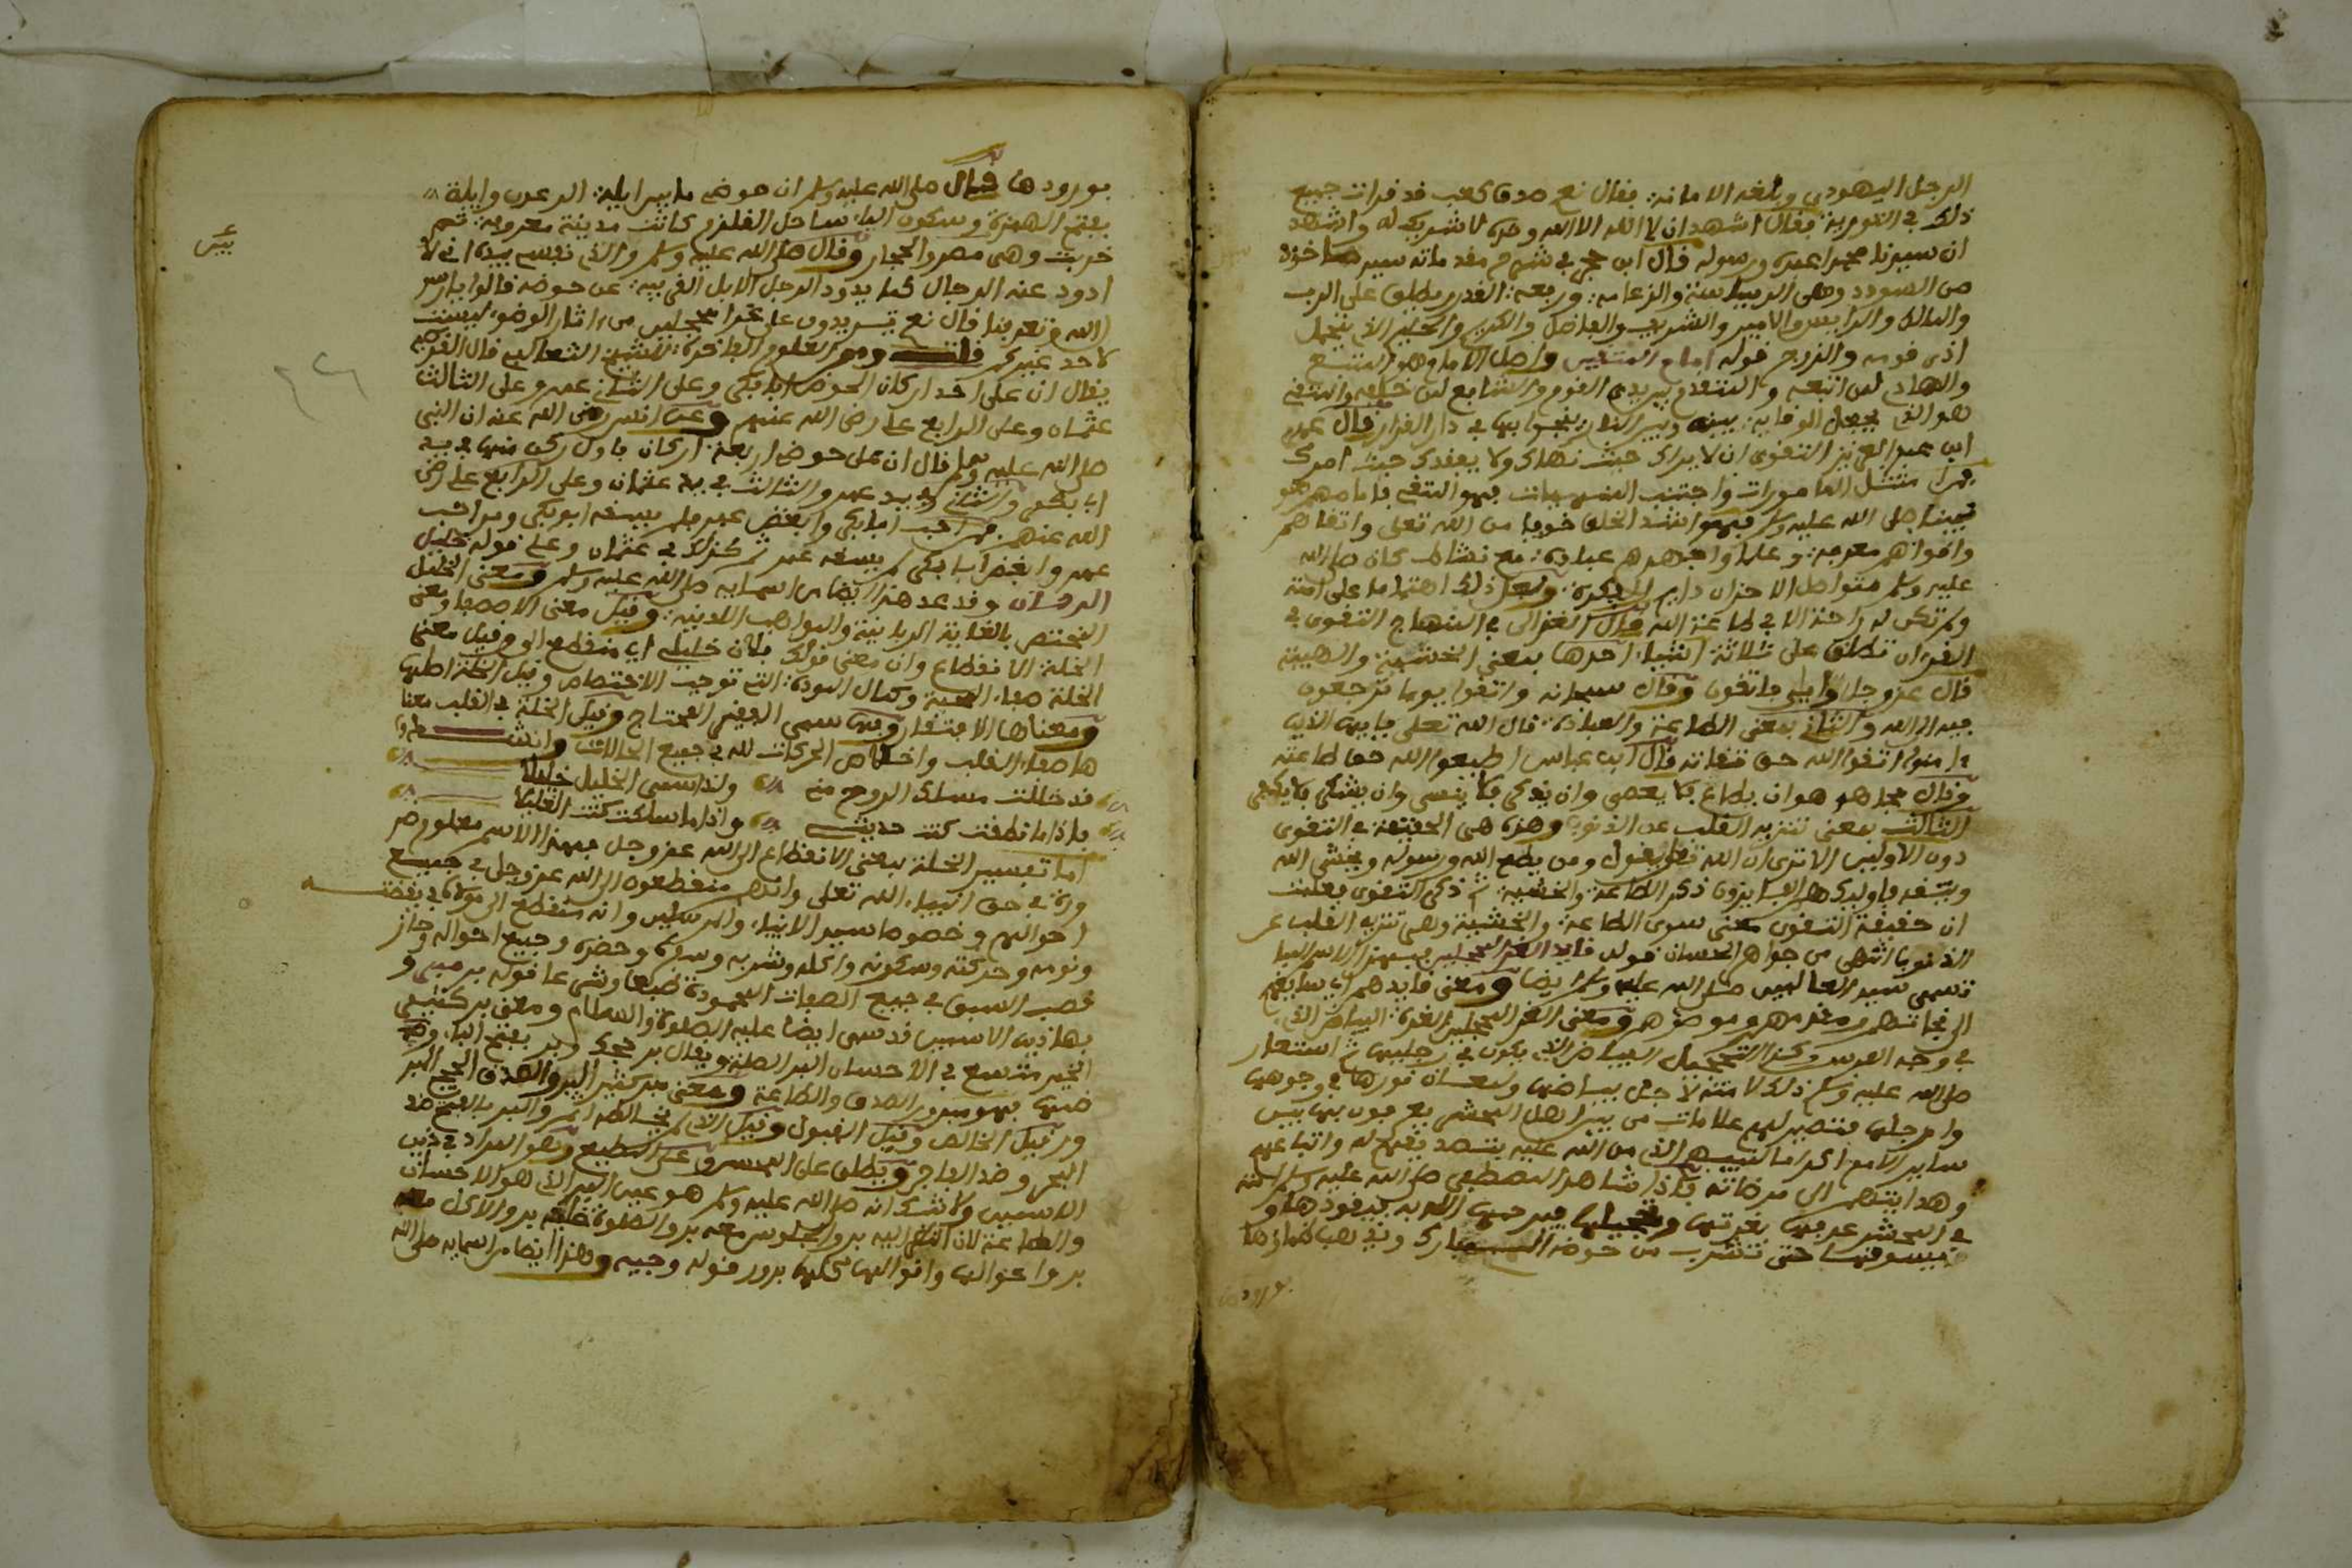 الرجل اليهودي وبلغه الامانة فقال نعم صدق كعب قد قرات جميع
ذلك في التورية فقال اشهد ان لا اله الا الله وحده لا شريك له واشهد
ان سيدنا محمدا عبده ورسوله قال ابن حجر في شرح مقدماته سيد ماخوذ
من السودد وهي الرياسة والزعامة ورفعة القدر ويطلق على الرب
والمالك والرايس والامير والشريف والفاضل والكريم والحليم الذي يتحمل
اذى قومه والزوج قوله امام المتقين واصل الامام وهو المتبع
والهادي لمن اتبعه والمتقدم بين يدي القوم والشافع لمن خلفه والمتقي
هو الذي يجعل الوقاية بينه وبين النار ينجوا بها في دار القرار قال عمر
ابن عبد العزيز التقوى ان لا يراك حيث نهاك ولا يفقدك حيث امرك
فمن امتثل المامورات واجتنب المنهيات فهو المتقي فامامهم هو
نبينا صلى الله عليه وسلم فهو اشد الخلق خوفا من الله تعلى واتقاهم
واقواهم معرفة وعلما واجهدهم عبادة مع نشاط كان صلى الله
عليه وسلم متواصل الاحزان دايم الفكرة ولعل ذلك اهتماما على امته
ولم تكن له راحة الا في طاعة الله قال الغزالي في المنهاج التقوى في
القرءان تطلق على ثلاثة اشياء احدها بمعنى الخشية والهيبة
قال عز وجل وايي فاتقون وقال سبحانه واتقوا يوما ترجعون
فيه الى الله والثاني بمعنى الطاعة والعبادة قال الله تعلى يا يها الذين
ءامنوا اتقوا الله حق تقاته قال ابن عباس اطيعوا الله حق طاعته
وقال مجاهد هو ان يطاع فلا يعصى وان يذكر فلا ينسى وان يشكر فلا يكفر
الثالث بمعنى تنزيه القلب عن الذنوب وهذه هي الحقيقة في التقوى
دون الاوليين الا ترى ان الله تعلى يقول ومن يطع الله ورسوله ويخشى الله
ويتقه فاوليك هم الفايزون ذكر الطاعة والخشية ثم ذكر التقوى فعلمت
ان حقيقة التقوى معنى سوى الطاعة والخشية وهي تنزيه القلب عن
الذنوب انتهى من جواهر الحسان قوله قايد الغر المحجلين فبهذا الاسم ايضا
تسمى سيد العالمين صلى الله عليه وسلم ايضا ومعنى قايدهم اي سايقهم
الى نجاتهم ومعنى الغر المحجلين الغرة البياض الذي
في وجه الفرس وكذا التحجيل البياض الذي يكون في رجليها ثم استعار
صلى الله عليه وسلم ذلك لامته لاجل بياضها ولمعان نورها في وجوهها
وارجلها فتصير لهم علامات من بين اهل المحشر يعرفون بها بين
ساير الامم اكراما لنبيهم الذي من الله عليه بتصديقهم له واتباعهم
وهدايتهم الى مرضاته فاذا شاهد المصطفى صلى الله عليه وسلم امته
في المحشر عرفها بغرتها وتحجيلها فيرحمها الله به فيقودها و
يسوقها حتى تشرب من حوضه المبارك وتذهب ظمأها
بورودها
بورودها فقال صلى الله عليه وسلم ان حوضي ما بين ايلة الى عدن وايلة
بفتح الهمزة وسكون الياء ساحل القلزم كانت مدينة معروفة ثم
خربت وهي مصر والحجاز وقال صلى الله عليه وسلم والذي نفسي بيده اني لا
ذود عنه الرجال كما يذود الرجل الابل الغريبة عن حوضه قالوا يا رسول
الله وتعرفنا قال نعم تردون علي غرا محجلين من ءاثار الوضوء ليست
لاحد غيركم ومن العلوم الفاخرة للشيخ الثعالبي قال القرطبي
يقال ان على احد اركان الحوض ابا بكر وعلى الثاني عمر وعلى الثالث
عثمان وعلى الرابع علي رضي الله عنهم وعن انس رضي الله عنه ان النبي
صلى الله عليه وسلم قال ان على حوضي اربعة اركان فاول ركن منها في يد
ابي بكر والثاني في يد عمر والثالث في يد عثمان وعلى الرابع علي رضي
الله عنهم فمن احب ابا بكر وابغض عمر لم يسقه ابو بكر ومن احب
عمر وابغض ابا بكر لم يسقه عمر ثم كذلك في عثمان وعلي قوله خليل
الرحمان وقد عد هذا ايضا من اسمايه صلى الله عليه وسلم ومعنى الخليل
المختص بالعناية الربانية والمواهب اللدنية وقيل معنى الاصطفا ومعنى
الخلة الانقطاع وان معنى قولك فلان خليلي اي منقطع الي وقيل معنى
الخلة صفاء المحبة وكمال المودة التي توجب الاختصاص وقيل الخلة اصلها
ومعناها الافتقار وبها سمي الفقير المحتاج وقيل الخلة في القلب معنا
ها صفاء القلب واخلاص الحركات لله في جميع الحالات وانشدوا
قد تخللت مسلك الروح مني ولذا سمي الخليل خليلا
فاذا ما نطقت كنت حديثي واذا ما سكت كنت الغليلا
اما تفسير الخلة بمعنى الانقطاع الى الله عز وجل فبهذا الاسم معلوم ضر
ورة في حق انبياء الله تعلى وانهم منقطعون الى الله عز وجل في جميع
احوالهم وخصوصا سيد الانبياء والمرسلين وانه منقطع الى مولاه في يقظته
ونومه وحركته وسكونه واكله وشربه وسفره وحضره وجميع احواله وحاز
قصب السبق في جميع الصفات المحمودة طبعا وشرعا قوله بر مبر و
بهاذين الاسمين قد سمي ايضا عليه الصلوة والسلام ومعنى بر كثير
الخير متسع في الاحسان البر الصلة ويقال بر وبر بفتح الباء وضم
منها فهو مبرور الصدق والطاعة ومعنى مبر كثير البر والصدق الحج البر
ور قيل الخالص وقيل القبول وقيل الذي لم يخالطه اثم والبر بالفتح ضد
البحر وضد الفاجر ويطلق على المحسن وعلى المطيع وهو المراد في ذين
الاسمين ولا شك انه صلى الله عليه وسلم هو عين البر الذي هو الاحسان
والطاعة لان النظر اليه بر والجلوس معه بر والصلوة خلفه بر والاكل معه
بر واحوالها واقوالها كلها برور قوله وجيه وهذا ايضا من اسمايه صلى الله